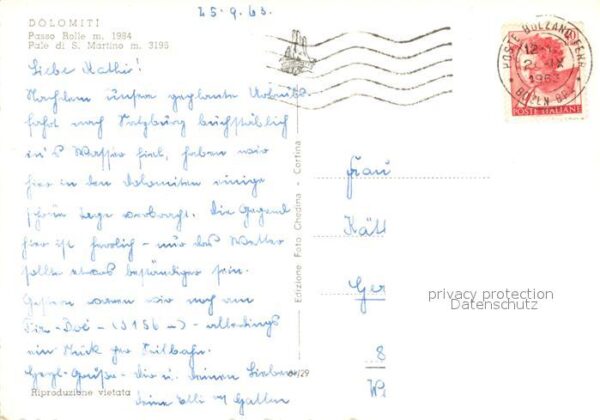 25.9.63.
DOLOMITI
Passo Rolle m. 1984
Pale di S. Martino m. 3195
Liebe Kathi!
Nachdem unsere geplante Urlaubs-
fahrt nach Salzburg buchstäblich
in's Wasser fiel, haben wir
hier in den Dolomiten einige
schöne Tage verbracht. Die Gegend
hier ist herrlich - nur das Wetter
sollte etwas beständiger sein.
Gestern waren wir noch am
Piz-Boè - (3156 m) - allerdings
ein Stück per Seilbahn.
Herzl. Grüße - dir u. deinen Lieben
deine Elli u Gatten
Riproduzione vietata
Edizione Foto Ghedina - Cortina
/29
POSTE BOLZANO FERR
12-13
2 IX
1963
BOZEN
POSTE ITALIANE
Frau
Kätt
Ger
8
privacy protection
Datenschutz